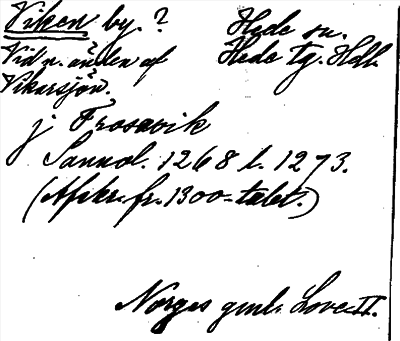 Viken by. ? Hede sn.
Vid n. änden af Hede tg. Hdl.
Vikarsjön.
j Frosavik
Sannol. 1268 l. 1273.
(Afskr. fr. 1300-talet.)
Norges gml. Love II.